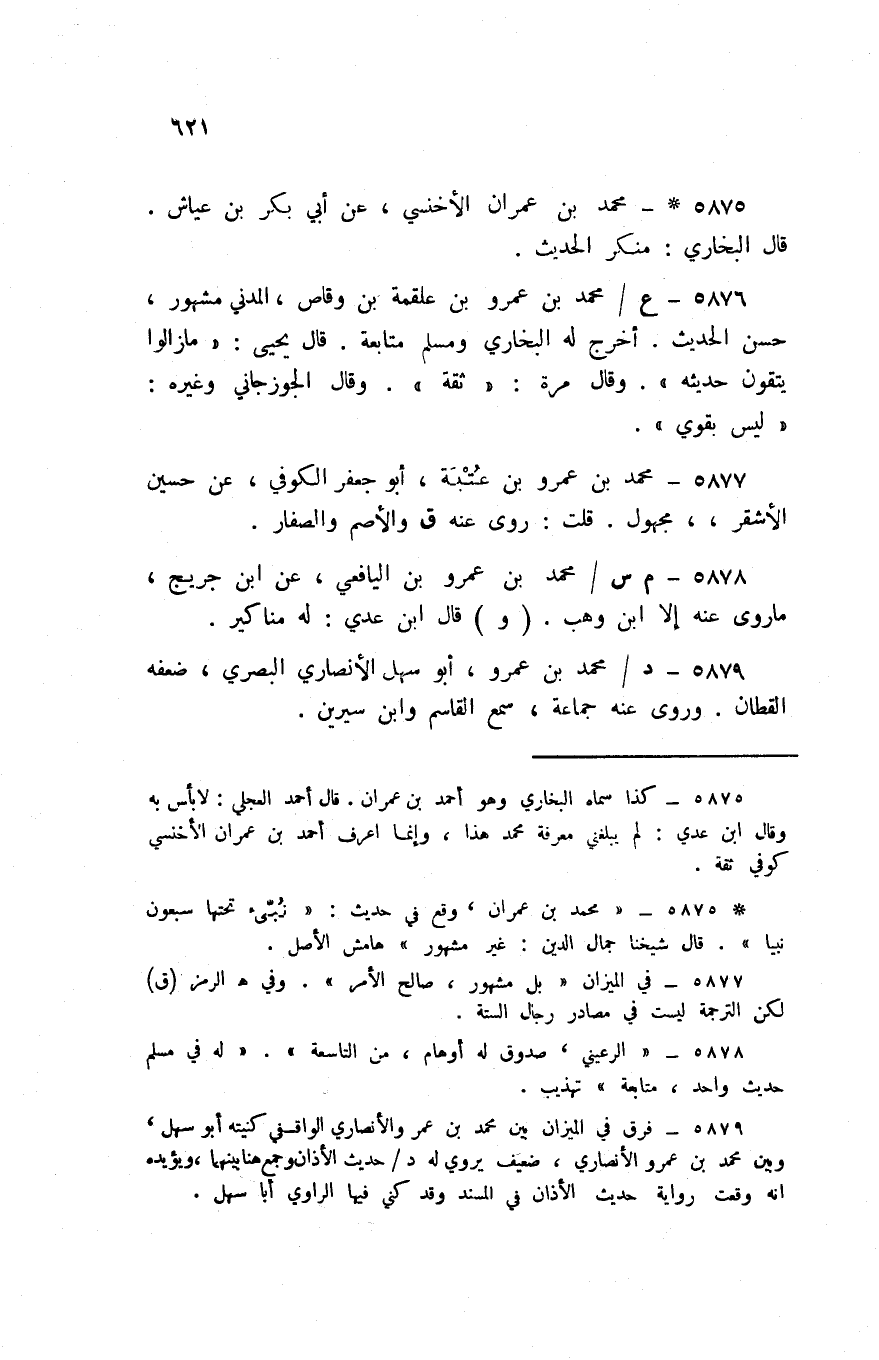 ٦٢١
٥٨٧٥ * ـ محمد بن عمران الأخنسي ، عن أبي بكر بن عياش .
قال البخاري : منكر الحديث .
٥٨٧٦ ـ ع / محمد بن عمرو بن علقمة بن وقاص ، المدني مشهور ،
حسن الحديث . أخرج له البخاري ومسلم متابعة . قال يحيى : « مازالوا
يتقون حديثه » . وقال مرة : « ثقة » . وقال الجوزجاني وغيره :
« ليس بقوي » .
٥٨٧٧ ـ محمد بن عمرو بن عُتْبَة ، أبو جعفر الكوفي ، عن حسين
الأشقر ، ، مجهول . قلت : روى عنه ق والأصم والصفار .
٥٨٧٨ ـ م س / محمد بن عمرو بن اليافعي ، عن ابن جريج ،
ماروى عنه إلا ابن وهب . ( و ) قال ابن عدي : له مناكير .
٥٨٧٩ ـ د / محمد بن عمرو ، أبو سهل الأنصاري البصري ، ضعفه
القطان . وروى عنه جماعة ، سمع القاسم وابن سيرين .
٥٨٧٥ ـ كذا سماه البخاري وهو أحمد بن عمران . قال أحمد العجلي : لابأس به
وقال ابن عدي : لم يبلغني معرفة محمد هذا ، وإنما اعرف أحمد بن عمران الأخنسي
كوفي ثقة .
* ٥٨٧٥ ـ « محمد بن عمران ، وقع في حديث : « نُبّيء تحتها سبعون
نبيا » . قال شيخنا جمال الدين : غير مشهور » هامش الأصل .
٥٨٧٧ ـ في الميزان « بل مشهور ، صالح الأمر » . وفي ه الرمز (ق)
لكن الترجمة ليست في مصادر رجال الستة .
٥٨٧٨ ـ « الرعيني ، صدوق له أوهام ، من التاسعة » . « له في مسلم
حديث واحد ، متابعة » تهذيب .
٥٨٧٩ ـ فرق في الميزان بين محمد بن عمر والأنصاري الواقفي كنيته أبو سهل ،
وبين محمد بن عمرو الأنصاري ، ضعيف يروي له د / حديث الأذان وجمع هنا بينهما ، ويؤيده
انه وقعت رواية حديث الأذان في المسند وقد كني فيها الراوي أبا سهل .